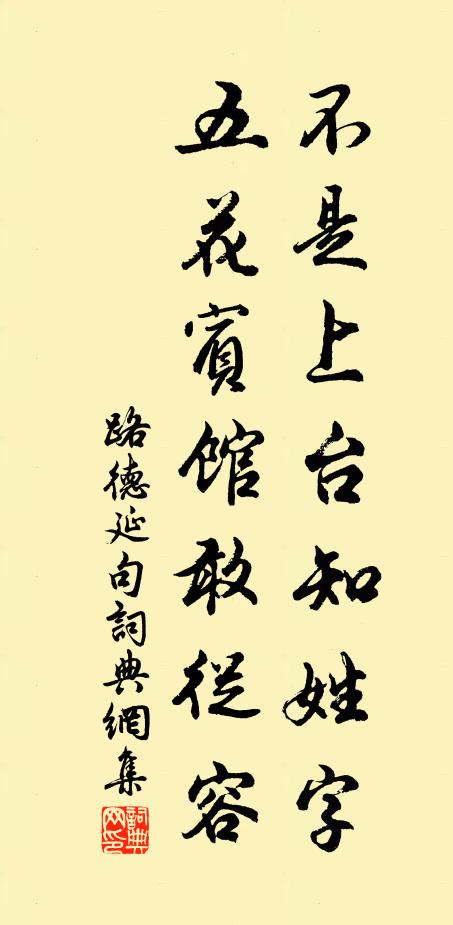 不是上台知姓字
五花賓館敢從容
路德延句詞典網集
詞典網印